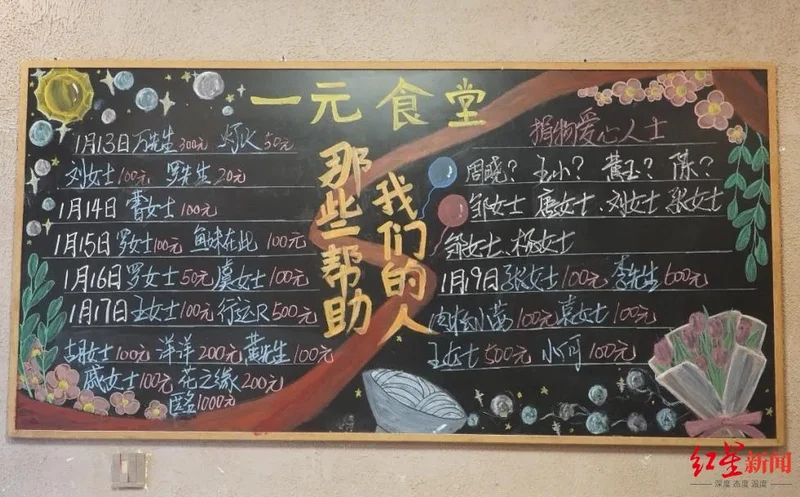 一元食堂
那些帮助
我们的人
1月13日万先生300元 灯火50元
刘女士100元 罗先生20元
1月14日 曹女士100元
1月15日罗女士100元 鱼妹在此 100元
1月16日罗女士50元 虞女士100元
1月17日王女士100元 行远R500元
女士100元 洋洋200元 黄先生100元
戚女士100元 花之缘200元
匿名1000元
捐物爱心人士
周晓? 王小? 黄玉? 陈?
邹女士 唐女士、刘女士 张女士
邹女士、杨女士
1月19日张女士100元 李先生600元
100元 袁女士100元
王女士500元 小何100元
红星新闻
深度 态度 温度